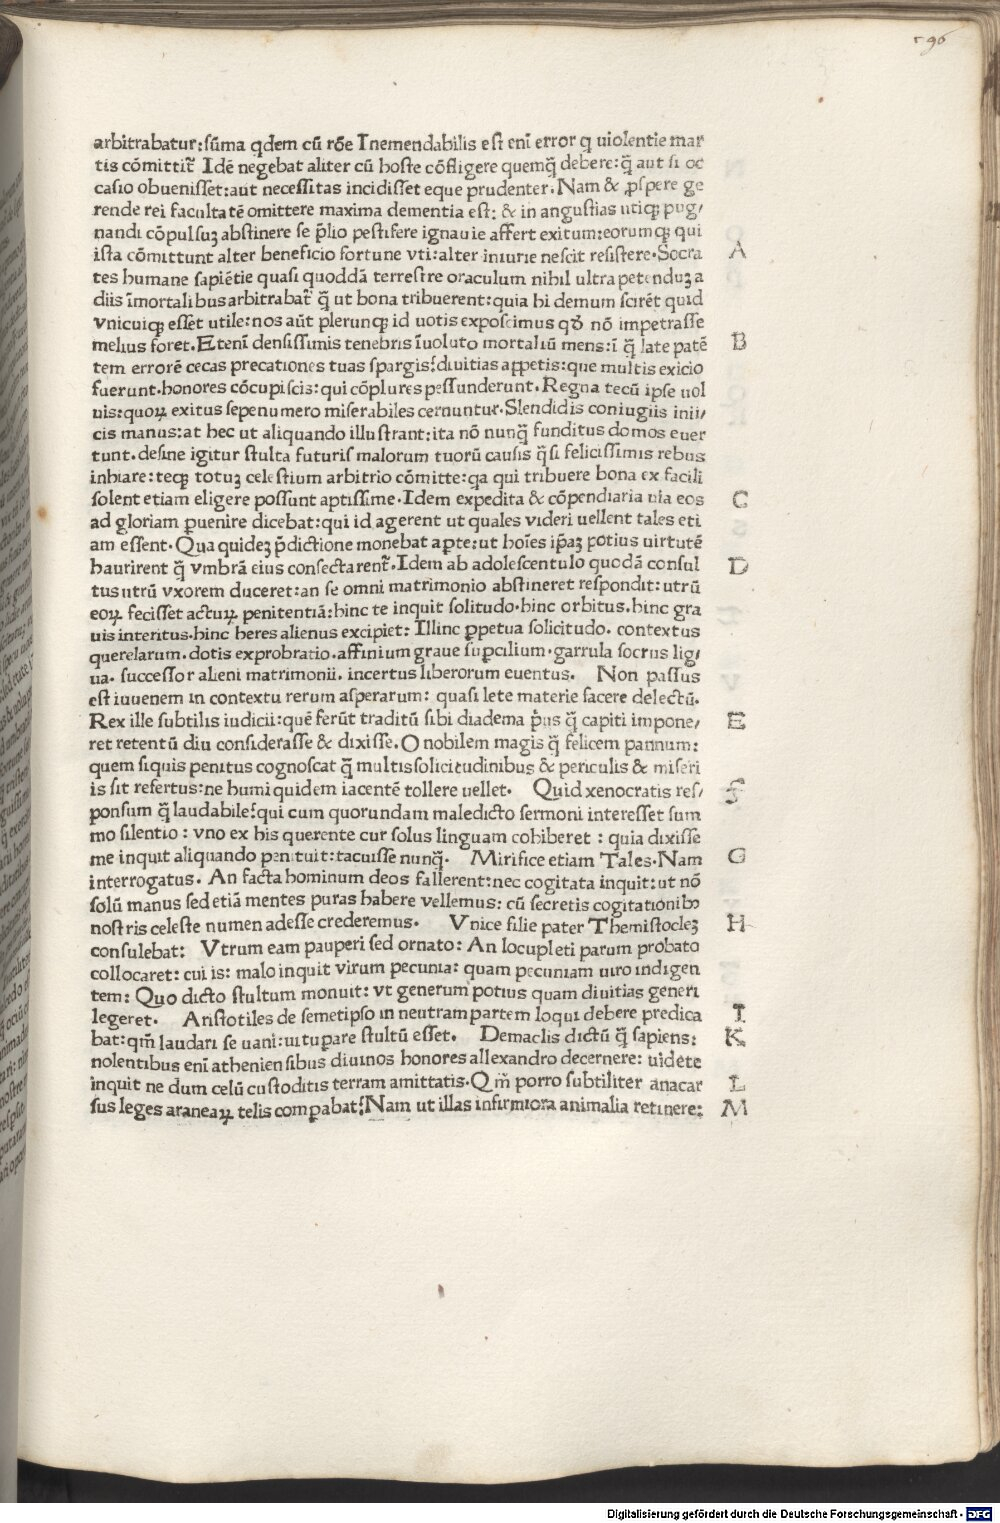 196
arbitrabatur: sūma qdem cū rōe Inemendabilis est enī error q uiolentie mar
tis cōmittit᷑ Idē negebat aliter cū hoste cōfligere quemq̄ debere: q̄ aut si oc
casio obuenisset: aut necessitas incidisset eque prudenter. Nam & ꝓspere ge
rende rei facultatē omittere maxima dementia est: & in angustias utiqꝫ pug/
nandi cōpulsuꝫ abstinere se p̄lio pestifere ignauie affert exitum: eorumqꝫ qui
ista cōmittunt alter beneficio fortune vti: alter iniurie nescit resistere. Socra
tes humane sapiētie quasi quoddā terrestre oraculum nihil ultra petenduꝫ a
diis īmortalibus arbitrabat᷑ q̄ ut bona tribuerent: quia hi demum scirēt quid
vnicuiqꝫ esset utile: nos aūt plerunqꝫ id uotis exposcimus qđ nō impetrasse
melius foret. Etenī densissimis tenebris īuoluto mortaliū mens: ī q̄ late patē
tem errorē cecas precationes tuas spargis! diuitias appetis: que multis exicio
fuerunt. honores cōcupiscis: qui cōplures pessunderunt. Regna tecū ipse uol
uis: quoꝝ exitus sepenumero miserabiles cernuntur. Slendidis coniugiis inii/
cis manus: at hec ut aliquando illustrant: ita nō nunq̄ funditus domos euer
tunt. desine igitur stulta futuris malorum tuorū causis q̄si felicissimis rebus
inhiare: teqꝫ totuꝫ celestium arbitrio cōmitte: qa qui tribuere bona ex facili
solent etiam eligere possunt aptissime. Idem expedita & cōpendiaria uia eos
ad gloriam ꝑuenire dicebat: qui id agerent ut quales videri uellent tales eti
am essent. Qua quideꝫ p̄dictione monebat aperte: ut hoīes ip̄aꝫ potius uirtutē
haurirent q̄ vmbrā eius consectarent᷑. Idem ab adolescentulo quodā consul
tus utrū vxorem duceret: an se omni matrimonio abstineret respondit: utrū
eoꝝ fecisset actuꝝ penitentiā: hinc te inquit solitudo. hinc orbitus. hinc gra
uis interitus. hinc heres alienus excipiet: Illinc ꝑpetua solicitudo. contextus
querelarum. dotis exprobratio. affinium graue suꝑcilium. garrula socrus lig/
ua. successor alieni matrimonii. incertus liberorum euentus. Non passus
est iuuenem in contextu rerum asperarum: quasi lete materie facere delectū.
Rex ille subtilis iudicii: quē ferūt traditū sibi diadema p̄us q̄ capiti impone/
ret retentū diu considerasse & dixisse. O nobilem magis q̄ felicem pannum:
quem siquis penitus cognoscat q̄ multis solicitudinibus & periculis & miseri
is sit refertus: ne humi quidem iacentē tollere uellet. Quid xenocratis res/
ponsum q̄ laudabile! qui cum quorundam maledicto sermoni interesset sum
mo silentio: vno ex his querente cur solus linguam cohiberet: quia dixisse
me inquit aliquando penituit: tacuisse nunq̄. Mirifice etiam Tales. Nam
interrogatus. An facta hominum deos fallerent: nec cogitata inquit: ut nō
solū manus sed etiā mentes puras habere vellemus: cū secretis cogitationibꝫ
nostris celeste numen adesse crederemus. Vnice filie pater Themistocleꝫ
consulebat: Vtrum eam pauperi sed ornato: An locupleti parum probato
collocaret: cui is: malo inquit virum pecunia: quam pecuniam uiro indigen
tem: Quo dicto stultum monuit: vt generum potius quam diuitias generi
legeret. Aristotiles de semetipso in neutram partem loqui debere predica
bat: qm̄ laudari se uani: uituꝑare stultū esset. Demaclis dictū q̄ sapiens:
nolentibus enī atheniensibus diuinos honores allexandro decernere: uidete
inquit ne dum celū custoditis terram amittatis. Qm̄ porro subtiliter anacar
sus leges araneaꝝ telis comꝑabat! Nam ut illas infirmiora animalia retinere:
A
B
C
D
E
F
G
H
I
K
L
M
Digitalisierung gefördert durch die Deutsche Forschungsgemeinschaft - DFG